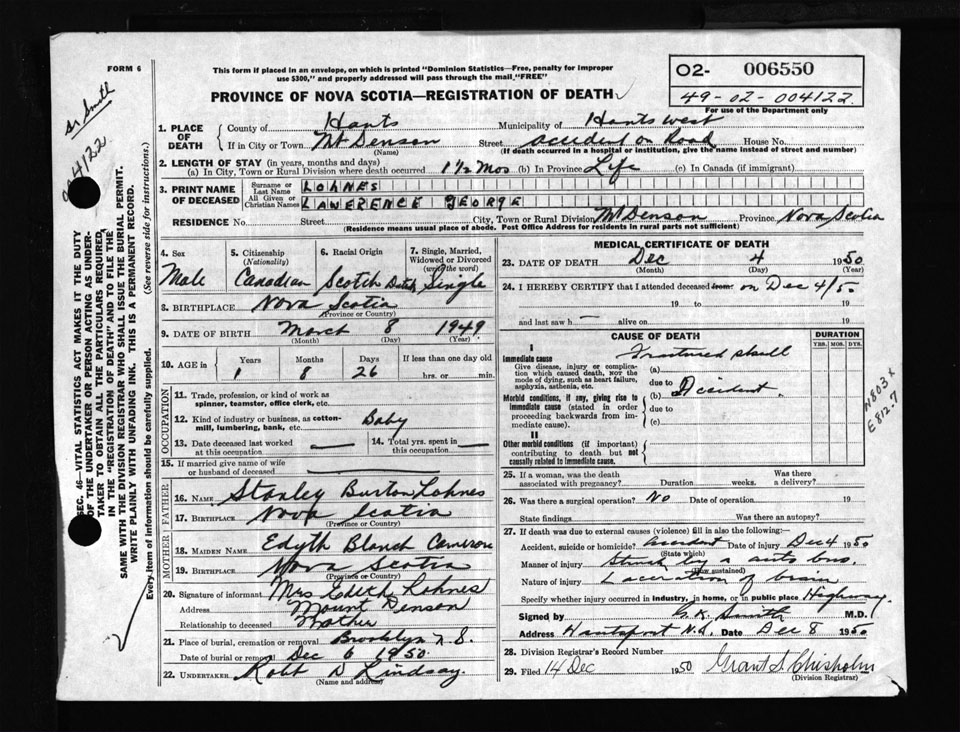 FORM 6
This form if placed in an envelope, on which is printed "Dominion Statistics—Free, penalty for improper
use $300," and properly addressed will pass through the mail "FREE"
O2- 006550
49-02-004122.
For use of the Department only
PROVINCE OF NOVA SCOTIA—REGISTRATION OF DEATH
Dr Smith
04122
SEC. 46—VITAL STATISTICS ACT MAKES IT THE DUTY
OF THE UNDERTAKER OR PERSON ACTING AS UNDER-
TAKER TO OBTAIN ALL THE PARTICULARS REQUIRED
IN THE "REGISTRATION OF DEATH" AND TO FILE THE
SAME WITH THE DIVISION REGISTRAR WHO SHALL ISSUE THE BURIAL PERMIT.
WRITE PLAINLY WITH UNFADING INK. THIS IS A PERMANENT RECORD.
Every item of information should be carefully supplied. (See reverse side for instructions.)
1. PLACE OF DEATH
County of Hants Municipality of Hants west
If in City or Town Mt Denson Street accident on Road House No.
(Name) (If death occurred in a hospital or institution, give the name instead of street and number)
2. LENGTH OF STAY (in years, months and days)
(a) In City, Town or Rural Division where death occurred 1½ Mos (b) In Province Life (c) In Canada (if immigrant)
3. PRINT NAME OF DECEASED
Surname or Last Name LOHNES
All Given or Christian Names LAWERENCE GEORGE
RESIDENCE No. Street City, Town or Rural Division Mt Denson Province Nova Scotia
(Residence means usual place of abode. Post Office Address for residents in rural parts not sufficient)
4. Sex Male
5. Citizenship (Nationality) Canadian
6. Racial Origin Scotch Dutch
7. Single, Married, Widowed or Divorced (write the word) Single
8. BIRTHPLACE Nova Scotia
(Province or Country)
9. DATE OF BIRTH March 8 1949
(Month) (Day) (Year)
10. AGE in Years Months Days If less than one day old
1 8 26 hrs. or min.
OCCUPATION
11. Trade, profession, or kind of work as
spinner, teamster, office clerk, etc.
12. Kind of industry or business, as cotton-
mill, lumbering, bank, etc. Baby
13. Date deceased last worked at this occupation
14. Total yrs. spent in this occupation
15. If married give name of wife
or husband of deceased
FATHER
16. NAME Stanley Burton Lohnes
17. BIRTHPLACE Nova Scotia
(Province or Country)
MOTHER
18. MAIDEN NAME Edyth Blanch Cameron
19. BIRTHPLACE Nova Scotia
(Province or Country)
20. Signature of informant Mrs Edith Lohnes
Address Mount Denson
Relationship to deceased Mother
21. Place of burial, cremation or removal Brooklyn N.S.
Date of burial or removal Dec 6 1950
22. UNDERTAKER Robt D Lindsay.
(Name and address)
MEDICAL CERTIFICATE OF DEATH
23. DATE OF DEATH Dec 4 1950
(Month) (Day) (Year)
24. I HEREBY CERTIFY that I attended deceased from: on Dec 4/50
19 to 19
and last saw h alive on 19
CAUSE OF DEATH
DURATION
YRS. MOS. DYS.
I
Immediate cause
Give disease, injury or complica-
tion which caused death, NOT the
mode of dying, such as heart failure,
asphyxia, asthenia, etc.
(a) Fractured skull
due to
Morbid conditions, if any, giving rise to
immediate cause (stated in order
proceeding backwards from im-
mediate cause).
(b) Accident
due to
(c)
II
Other morbid conditions (if important)
contributing to death but not
causally related to immediate cause.
N803 x
E812.7
25. If a woman, was the death
associated with pregnancy? Duration weeks. Was there a delivery?
26. Was there a surgical operation? No Date of operation 19
State findings Was there an autopsy?
27. If death was due to external causes (violence) fill in also the following:
Accident, suicide or homicide? Accident Date of injury Dec 4 1950
(State which)
Manner of injury Struck by a auto bus.
(How sustained)
Nature of injury Laceration of brain
Specify whether injury occurred in industry, in home, or in public place Highway.
Signed by G.K. Smith M.D.
Address Hantsport N.S. Date Dec 8 1950
28. Division Registrar's Record Number
29. Filed 14 Dec 1950 Grant S. Chisholm
(Division Registrar)